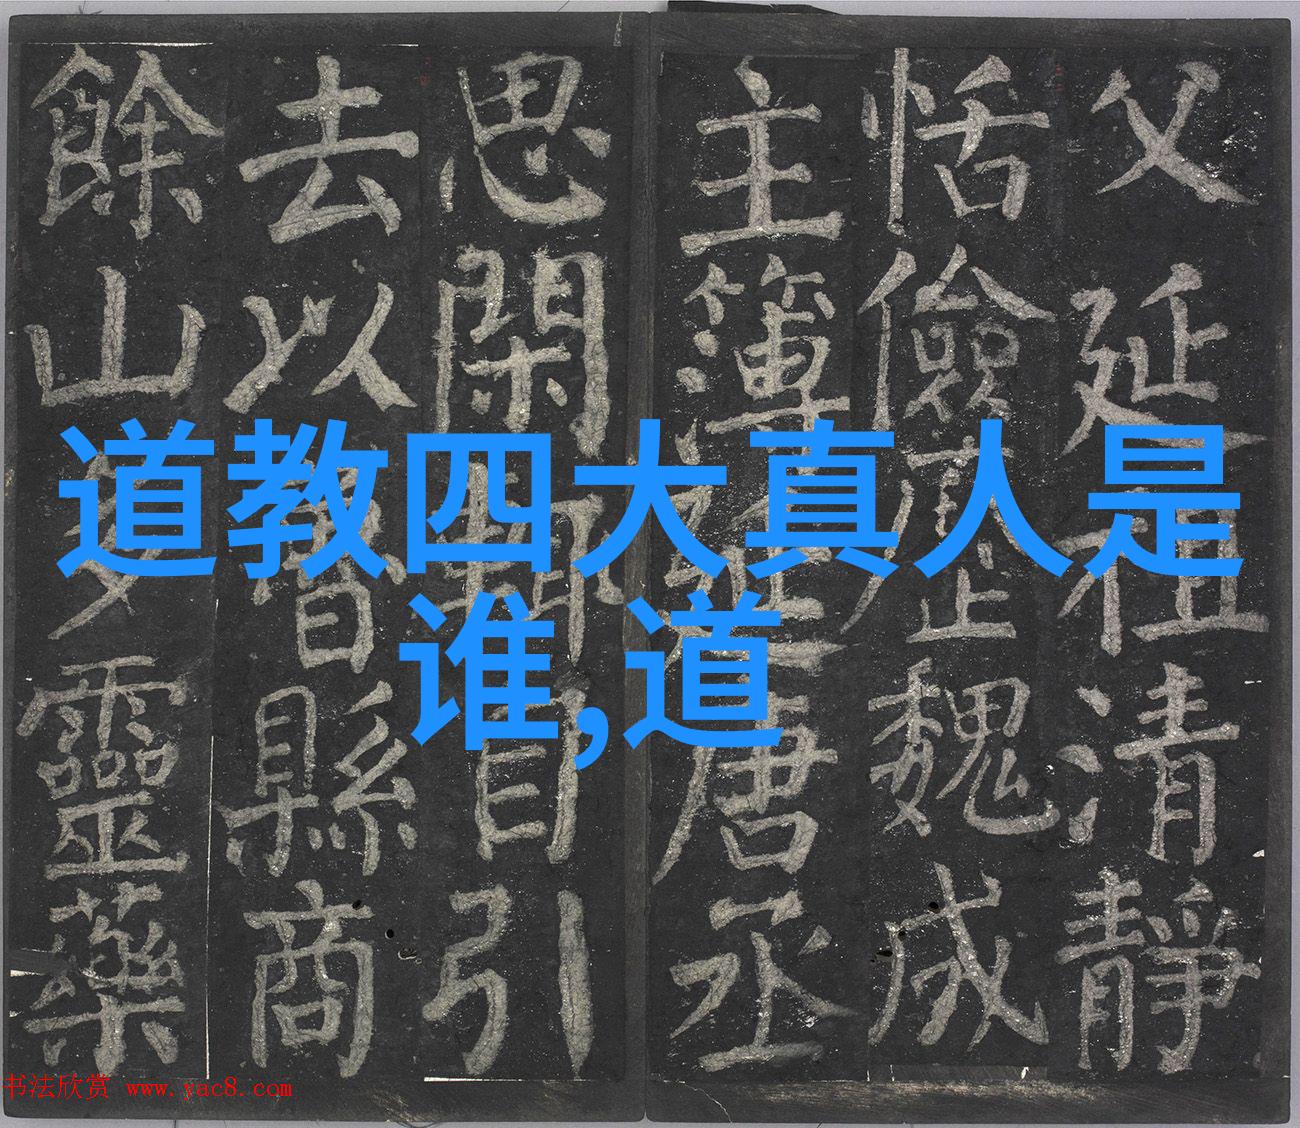 父延祖清靜
恬儉歷魏成
主簿延唐丞
思閑輒自引
去以魯縣商
餘山多靈藥
道教四大真人是
谁,道
书法欣赏 www.yac8.com